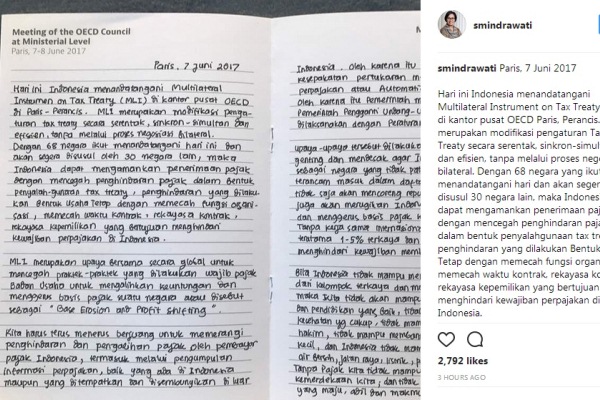 Meeting of the OECD Council
at Ministerial Level
Paris, 7-8 June 2017
Paris, 7 Juni 2017
Hari ini Indonesia menandatangani Multilateral
Instrumen on Tax Treaty (MLI) di kantor pusat OECD
di Paris - Perancis. MLI merupakan modifikasi penga-
turan tax treaty secara serentak, sinkron-simultan dan
efisien, tanpa melalui proses negosiasi bilateral.
Dengan 68 negara ikut menandatangani hari ini dan
akan segera disusul oleh 30 negara lain, maka
Indonesia dapat mengamankan penerimaan pajak
dengan mencegah penghindaran pajak dalam bentuk
penyalah-gunaan tax treaty, penghindaran yang dilaku-
kan Bentuk Usaha Tetap dengan memecah fungsi organi-
sasi, memecah waktu kontrak, rekayasa kontrak,
rekayasa kepemilikan yang bertujuan menghindari
kewajiban perpajakan di Indonesia.
MLI merupakan upaya bersama secara global untuk
mencegah praktek-praktek yang dilakukan wajib pajak
Badan Usaha untuk mengalihkan keuntungan dan
menggerus basis pajak suatu negara atau disebut
sebagai "Base Erosion and Profit Shifting".
Kita harus terus menerus berjuang untuk memerangi
penghindaran dan pengalihan pajak oleh pembayar
pajak Indonesia, termasuk melalui pengumpulan
informasi perpajakan, baik yang ada di Indonesia
maupun yang ditempatkan dan disembunyikan di luar
Indonesia. Oleh karena itu
kesepakatan pertukaran
perpajakan atau Automati
Oleh karena itu Pemerintah
Pemerintah Pengganti Undang-U
dilaksanakan dengan Peratura
Upaya-upaya tersebut dilakuk
genting dan mendesak agar I
sebagai negara yang tidak pa
terancam masuk dalam daft
tidak saja akan mencoreng repu
juga akan merugikan Indon
dan menggerus basis pajak
Tanpa kerja sama internasion
terutama 1-5% terkaya
menghindari kewajiban memb
Bila Indonesia tidak mampu me
dari kelompok terkaya dan
maka kita tidak akan mampu
dan pendidikan yang baik, tidak
kesehatan yg cukup, tidak mam
hakim, tidak mampu memban
kecil, dan Indonesia tidak mam
air bersih, jalan raya, listrik,
Tanpa Pajak kita tidak mamp
kemerdekaan kita, dan tidak
yang maju, adil dan makm
smindrawati
smindrawati Paris, 7 Juni 2017
Hari ini Indonesia menandatangani
Multilateral Instrument on Tax Treaty
di kantor pusat OECD Paris, Perancis.
merupakan modifikasi pengaturan Ta
Treaty secara serentak, sinkron-simul
dan efisien, tanpa melalui proses nego
bilateral. Dengan 68 negara yang ikut
menandatangani hari dan akan seger
disusul 30 negara lain, maka Indones
dapat mengamankan penerimaan paj
dengan mencegah penghindaran paja
dalam bentuk penyalahgunaan tax tre
penghindaran yang dilakukan Bentuk
Tetap dengan memecah fungsi organ
memecah waktu kontrak, rekayasa ko
rekayasa kepemilikan yang bertujuan
menghindari kewajiban perpajakan di
Indonesia.
2,792 likes
3 HOURS AGO